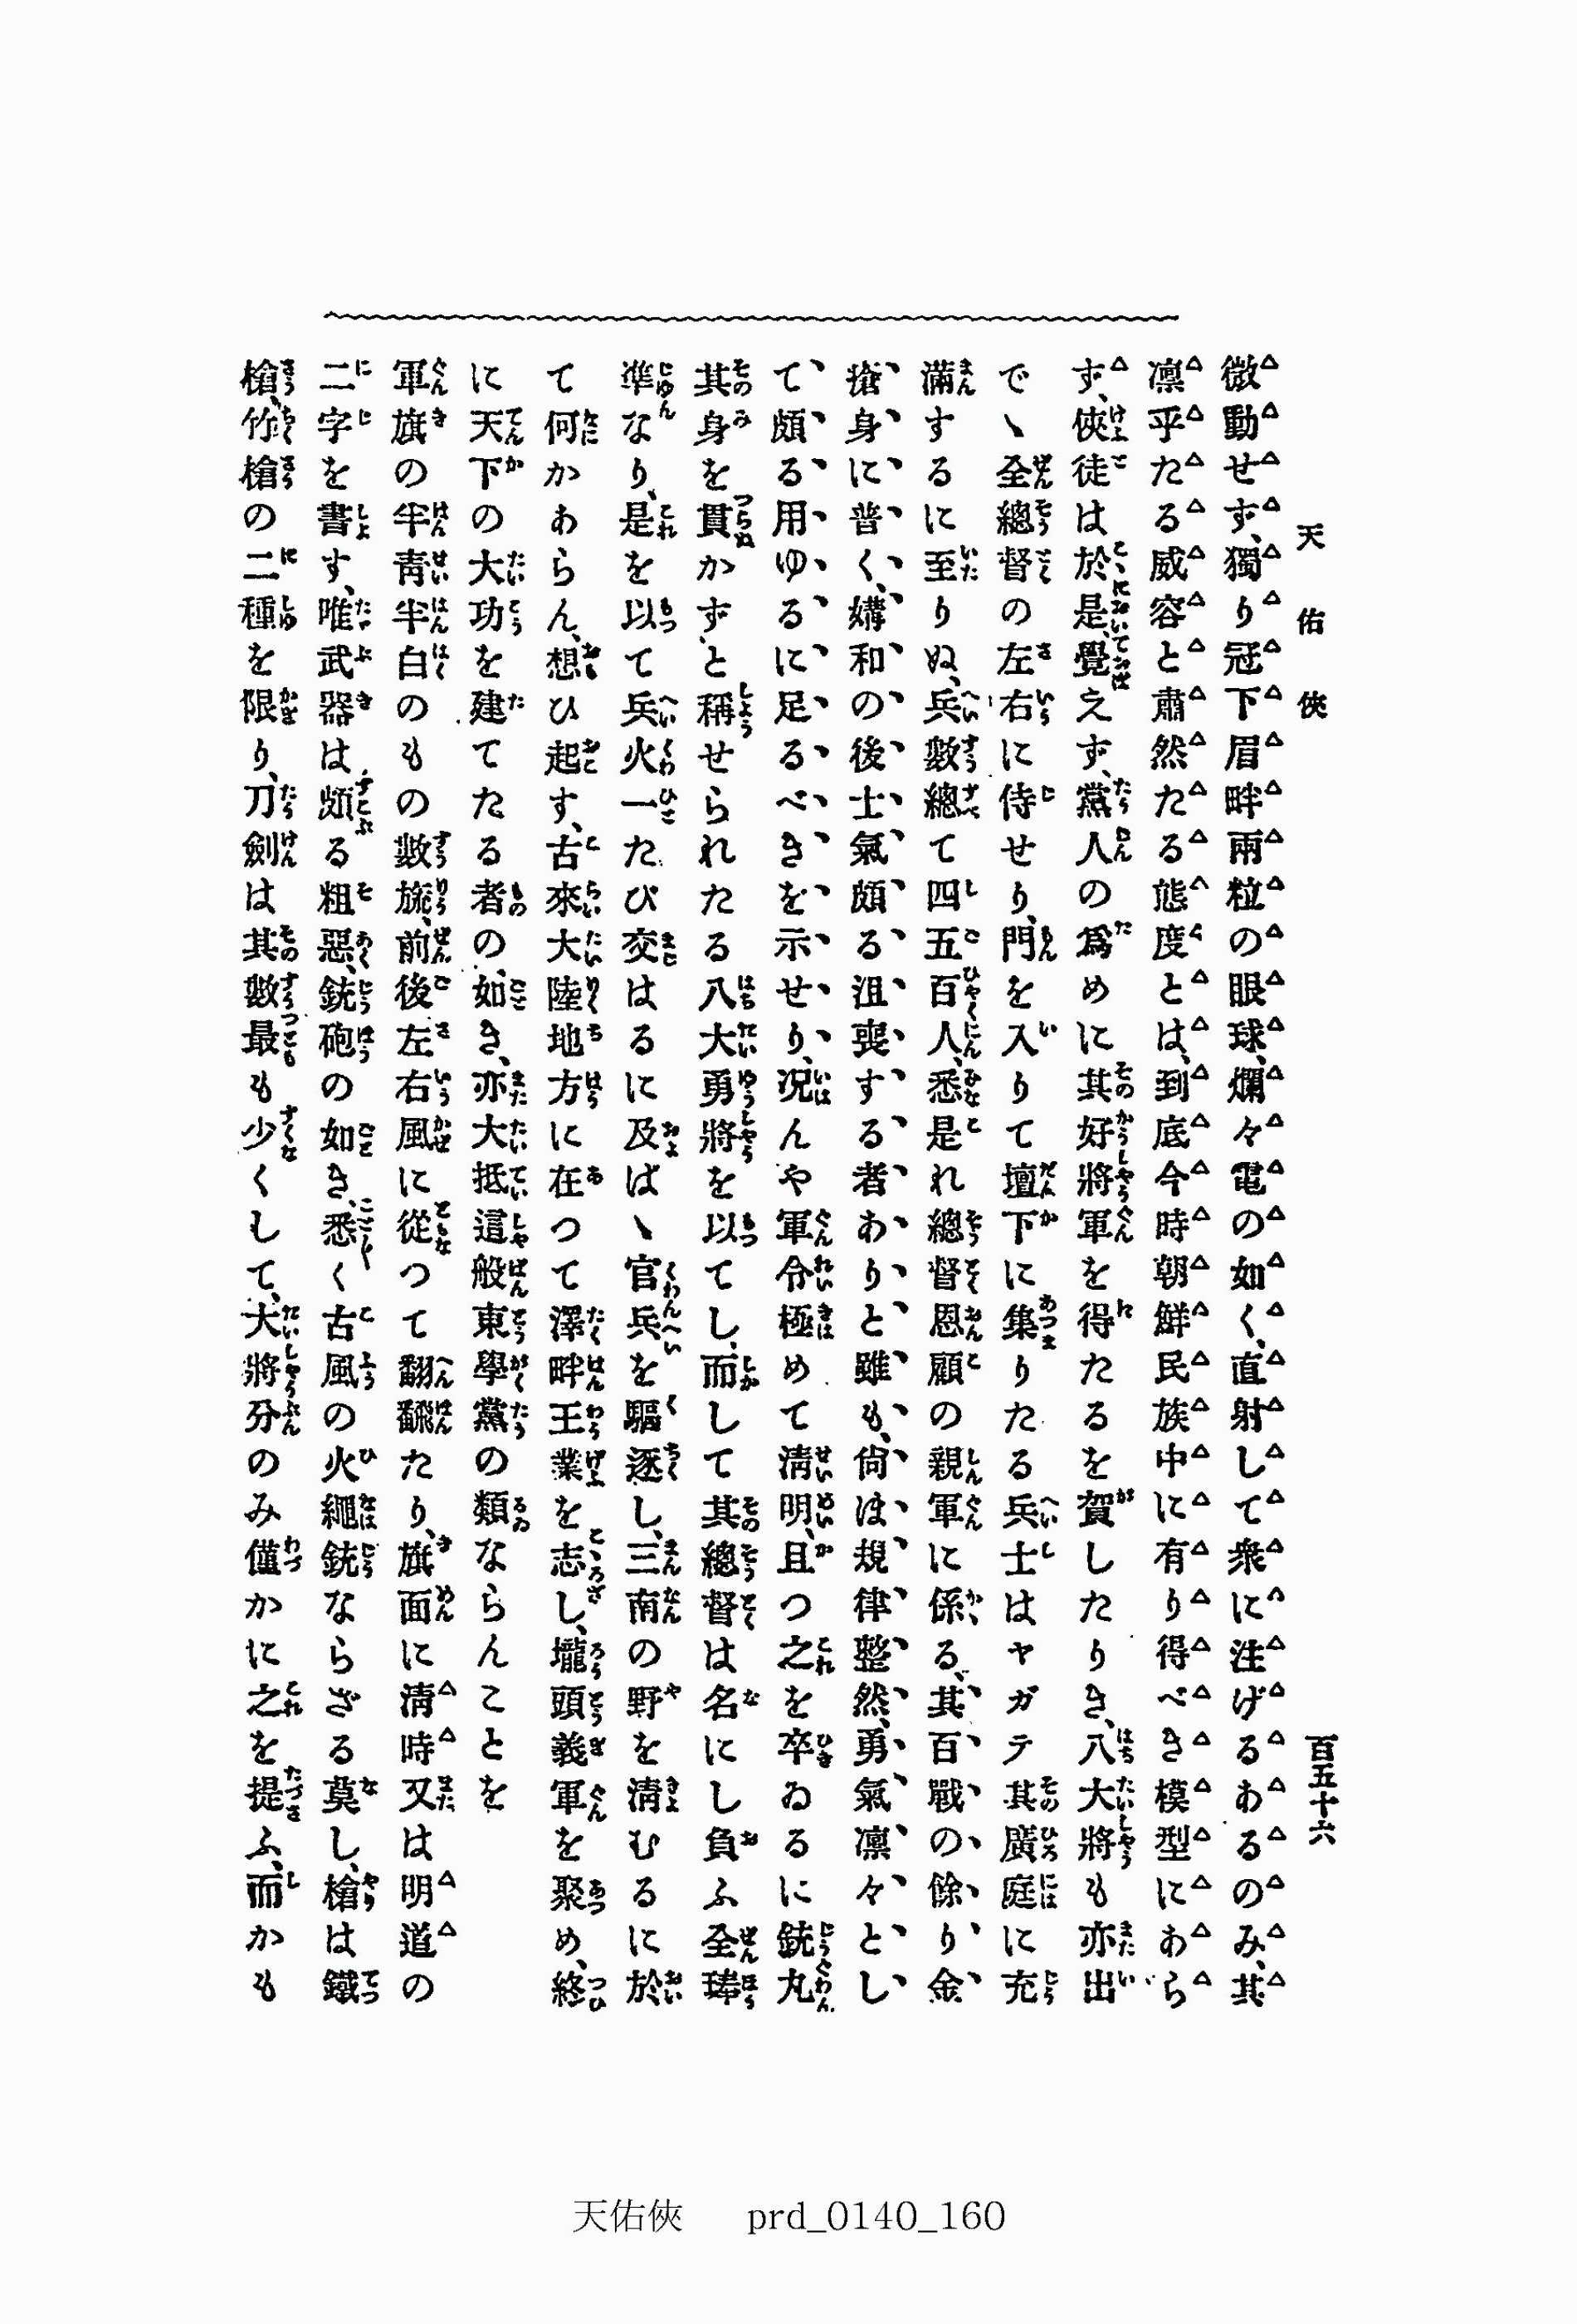 天佑俠
百五十六
微動せず、獨り冠下眉畔兩粒の眼球、爛々電の如く、直射して衆に注げるあるのみ、其
凛乎たる威容と肅然たる態度とは、到底今時朝鮮民族中に有り得べき模型にあら
ず、俠徒は於是、覺えず、黨人の爲めに其好將軍を得たるを賀したりき、八大將も亦出
でヽ全總督の左右に侍せり、門を入りて壇下に集りたる兵士はヤガテ其廣庭に充
滿するに至りぬ、兵數總て四五百人、悉是れ總督恩顧の親軍に係る、其百戰の餘り金
瘡身に普く、媾和の後士氣頗る沮喪する者ありと雖も、尙ほ規律整然、勇氣凛々とし
て頗る用ゆるに足るべきを示せり、况んや軍令極めて淸明、且つ之を卒ゐるに銃丸
其身を貫かず、と稱せられたる八大勇將を以てし、而して其總督は名にし負ふ全琫
準なり、是を以て兵火一たび交はるに及ばヽ官兵を驅逐し、三南の野を淸むるに於
て何かあらん、想ひ起す、古來大陸地方に在つて澤畔王業を志し、壠頭義軍を聚め、終
に天下の大功を建てたる者の如き、亦大抵這般東學黨の類ならんことを
軍旗の半靑半白のもの數旒、前後左右風に從つて翻飜たり、旗面に淸時又は明道の
二字を書す、唯武器は頗る粗惡、銃砲の如き、悉く古風の火繩銃ならざる莫し、槍は鐵
槍、竹槍の二種を限り、刀劍は其數最も少くして、大將分のみ僅かに之を提ふ、而かも
天佑俠 prd_0140_160